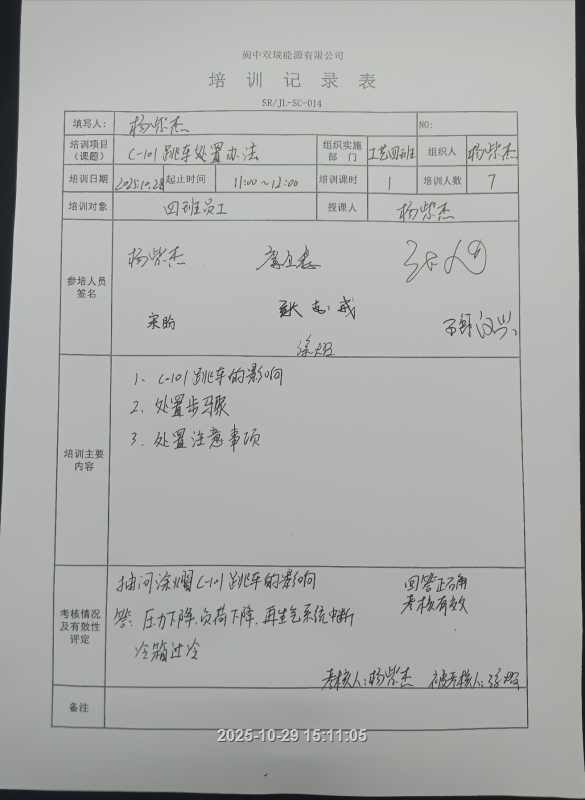 阆中双瑞能源有限公司
培训记录表
SR/JL-SC-014
填写人： 杨紫杰 NO:
培训项目（课题） C-101跳车处置办法 组织实施部门 工艺四班 组织人 杨紫杰
培训日期 2025.10.28 起止时间 11:00~12:00 培训课时 1 培训人数 7
培训对象 四班员工 授课人 杨紫杰
参培人员签名
杨紫杰
宋昀
培训主要内容
1、C-101跳车的影响
2、处置步骤
3、处置注意事项
考核情况及有效性评定
抽问涂熠C-101跳车的影响 回答正确
考核有效
答：压力下降，负荷下降，再生气系统中断
冷箱过冷
考核人：杨紫杰 被考核人：涂熠
备注
2025-10-29 15:11:05